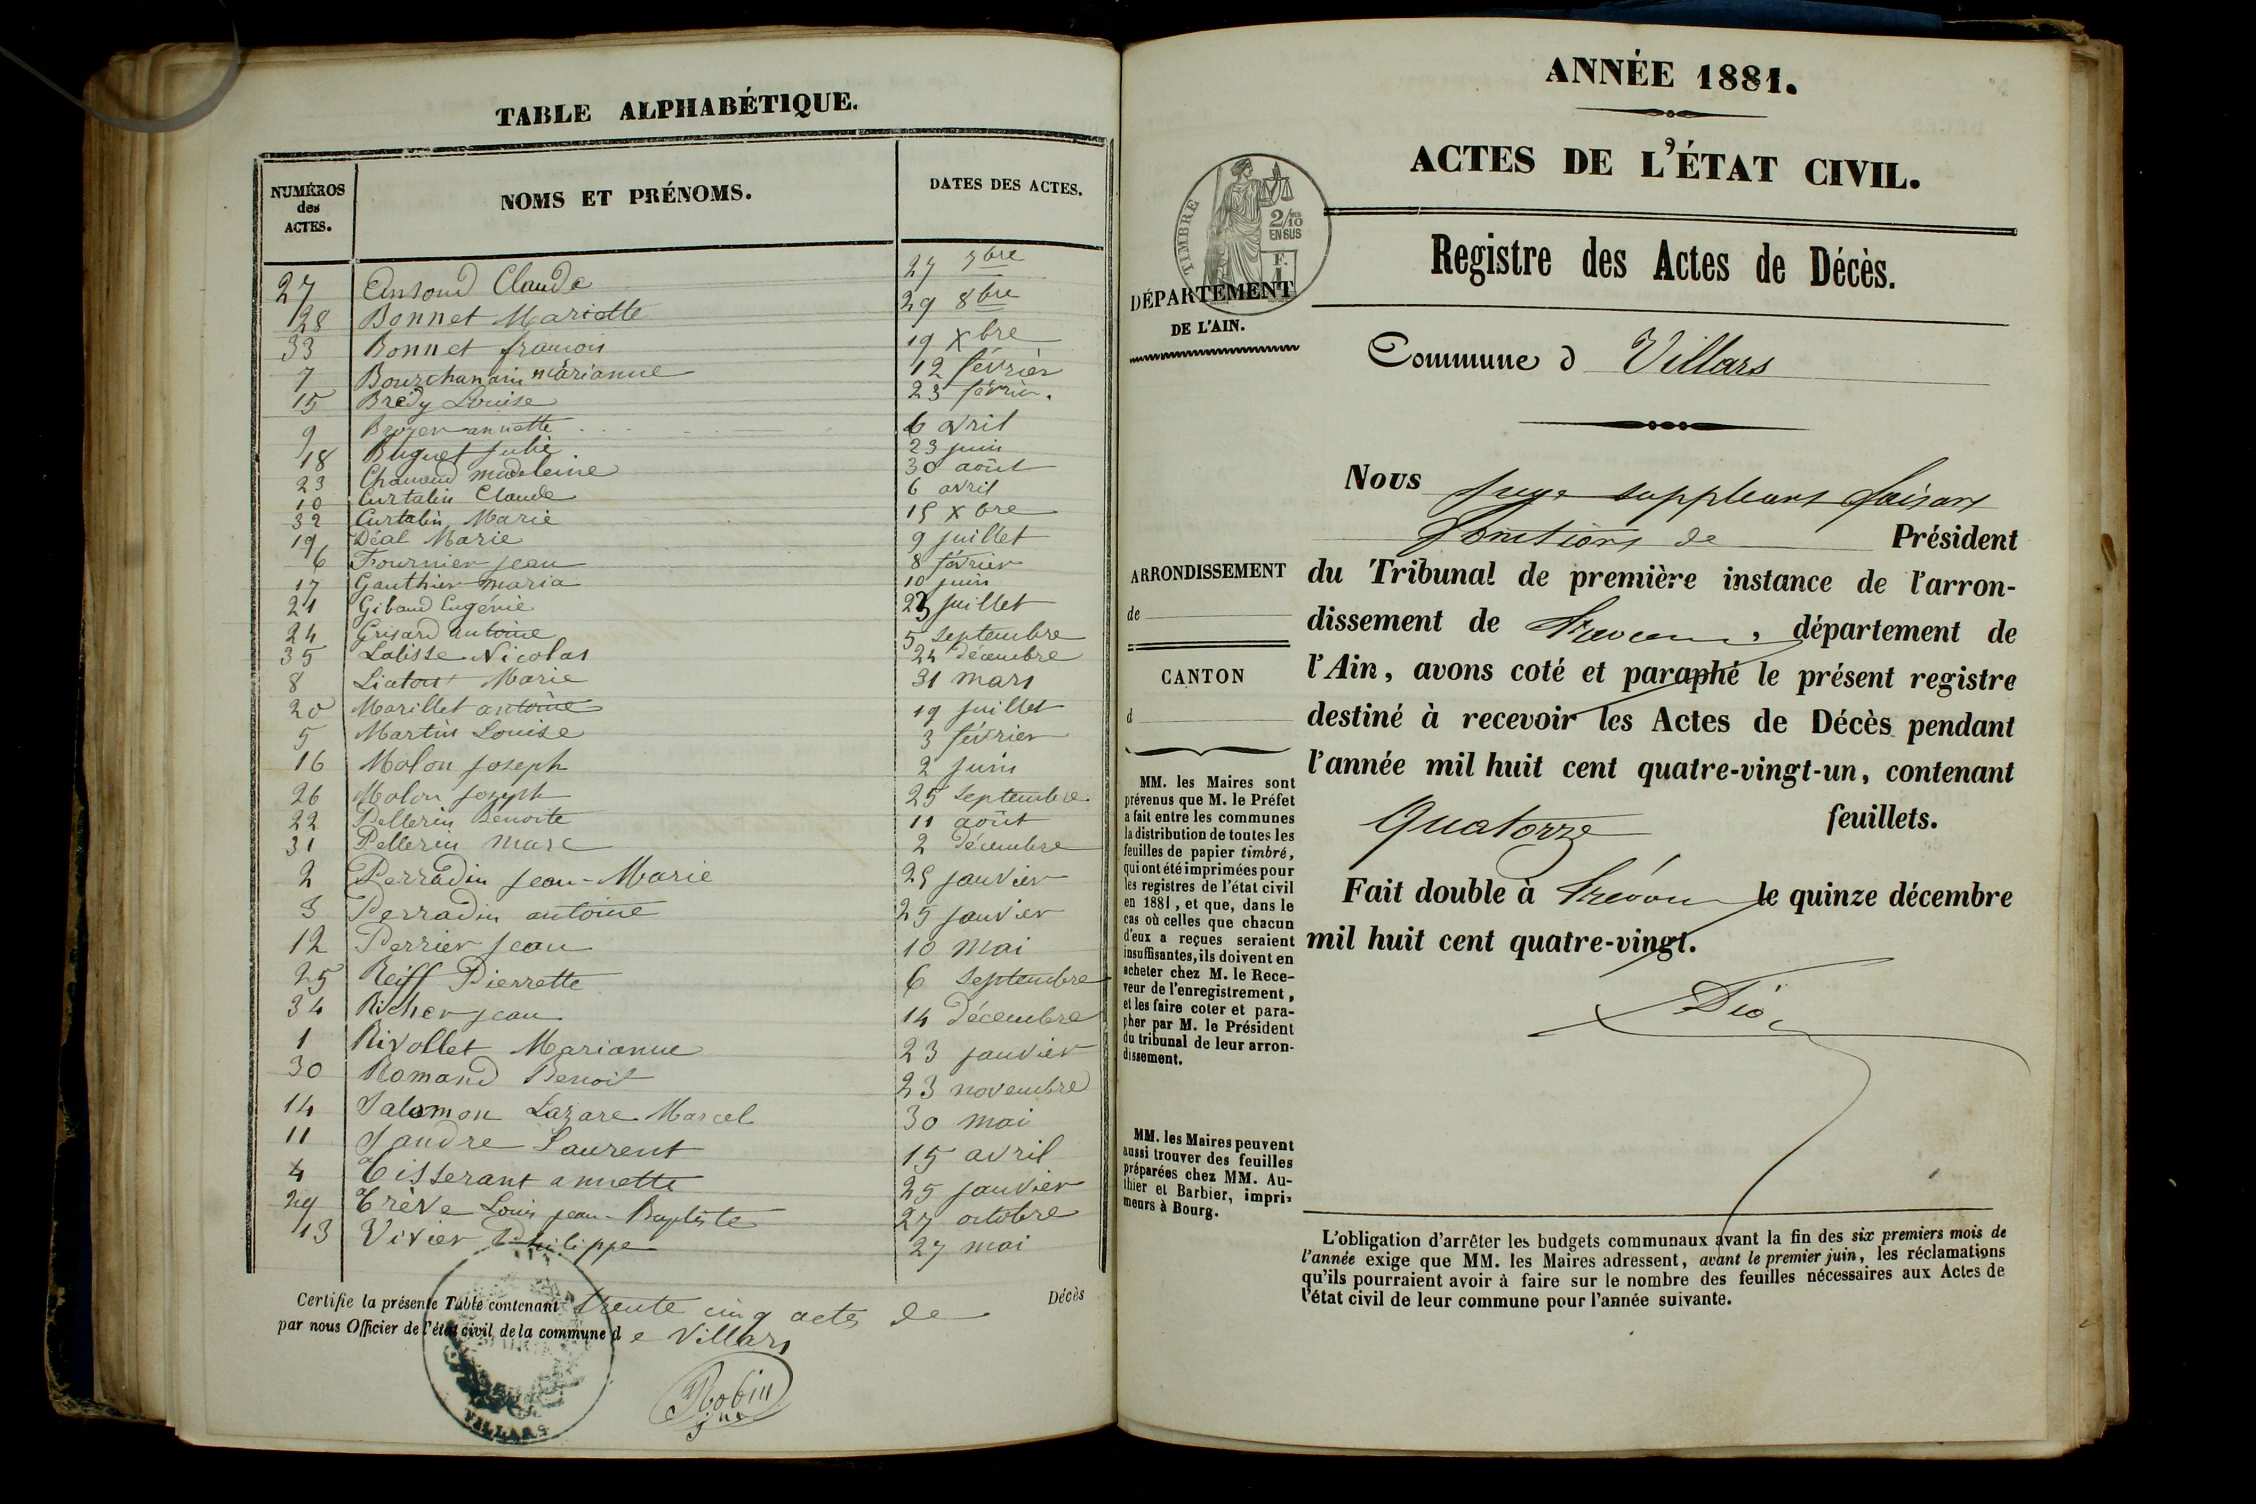 TABLE ALPHABÉTIQUE.
NUMÉROS des ACTES. NOMS ET PRÉNOMS. DATES DES ACTES.
27 Claude 27 7bre
28 Bonnet Mariette 29 8bre
33 Bonnet françois 19 Xbre
7 Bourchanin marianne 12 février
15 Brédy Louise 23 février.
9 Broyer annette 6 avril
18 Buguet Julie 23 juin
23 Chanaud madeleine 30 août
10 Curtalin Claude 6 avril
32 Curtalin Marie 15 Xbre
19 Déal Marie 9 juillet
6 Fournier jean 8 février
17 Gauthier maria 10 juin
21 Gibaud Eugénie 23 juillet
24 Grisard antoine 5 septembre
35 Labisse Nicolas 24 décembre
8 Marie 31 mars
20 Marillet antoine 19 juillet
5 Martin Louise 3 février
16 Molon joseph 2 juin
26 Molon joseph 25 septembre.
22 Pellerin Benoite 11 août
31 Pellerin Marc 2 décembre
2 Perradin jean-Marie 25 janvier
3 Perradin antoine 25 janvier
12 Perrier jean 10 mai
25 Reiff Pierrette 6 septembre
34 Richer jean 14 décembre
1 Rivollet Marianne 23 janvier
30 Romand Benoit 23 novembre
14 Salomon Lazare Marcel 30 mai
11 Sandre Laurent 15 avril
4 Tisserant annette 25 janvier
29 Trève Louis jean-Baptiste 27 octobre
13 Vivier Philippe 27 mai
Certifie la présente Table contenant trente cinq actes de Décès
par nous Officier de l'état civil de la commune d e Villars
VILLARS
Robin
ANNÉE 1881.
ACTES DE L'ÉTAT CIVIL.
TIMBRE
2/10
EN SUS
F.
1
DÉPARTEMENT
DE L'AIN.
Registre des Actes de Décès.
Commune d Villars
ARRONDISSEMENT
de
CANTON
d
MM. les Maires sont
prévenus que M. le Préfet
a fait entre les communes
la distribution de toutes les
feuilles de papier timbré,
qui ont été imprimées pour
les registres de l'état civil
en 1881, et que, dans le
cas où celles que chacun
d'eux a reçues seraient
insuffisantes, ils doivent en
acheter chez M. le Rece-
veur de l'enregistrement,
et les faire coter et para-
pher par M. le Président
du tribunal de leur arron-
dissement.
MM. les Maires peuvent
aussi trouver des feuilles
préparées chez MM. Au-
thier et Barbier, impri-
meurs à Bourg.
Nous juge suppléant faisant
fonctions de Président
du Tribunal de première instance de l'arron-
dissement de Trévoux, département de
l'Ain, avons coté et paraphé le présent registre
destiné à recevoir les Actes de Décès pendant
l'année mil huit cent quatre-vingt-un, contenant
Quatorze feuillets.
Fait double à Trévoux le quinze décembre
mil huit cent quatre-vingt.
L'obligation d'arrêter les budgets communaux avant la fin des six premiers mois de
l'année exige que MM. les Maires adressent, avant le premier juin, les réclamations
qu'ils pourraient avoir à faire sur le nombre des feuilles nécessaires aux Actes de
l'état civil de leur commune pour l'année suivante.